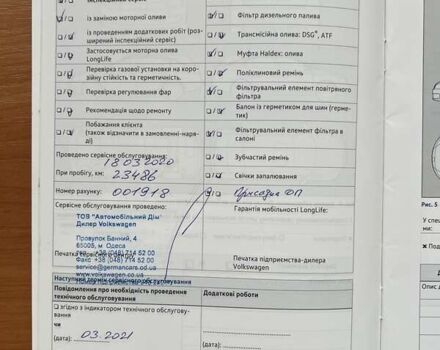 із заміною моторної оливи
із проведенням додаткових робіт (роз-
ширений інспекційний сервіс)
Застосовується моторна олива
LongLife
Перевірка газової установки на коро-
зійну стійкість та герметичність.
Перевірка регулювання фар
Рекомендація щодо ремонту
Побажання клієнта
(також відзначити в замовленні-наря-
ді)
Фільтр дизельного палива
Трансмісійна олива: DSG®, ATF
Муфта Haldex: олива
Поліклиновий ремінь
Фільтрувальний елемент повітряного
фільтра
Балон із герметиком для шин (герме-
тик)
Фільтрувальний елемент фільтра в
салоні
Зубчатий ремінь
Свічки запалювання
Присадка ДП
Гарантія мобільності LongLife:
Проведено сервісне обслуговування:
18 03 2020
При пробігу, км: 23486
Номер рахунку: 001918
Сервісне обслуговування проведено:
ТОВ "Автомобільний Дім"
Дилер Volkswagen
Провулок Банний, 4
65005, м. Одеса
Факс +38 (048) 714 52 00
service@germancars.od.ua
www.volkswagen.co.ua
Печатка підприємства-дилера
Volkswagen
Наступний термін сервісного обслуговування
Повідомлення про необхідність проведення
технічного обслуговування
Додаткові роботи
згідно з індикатором технічного обслуговування
чи
03.2021
(дата):
(дата):
Рис. 5
У спе
ми:
Под
Опис д